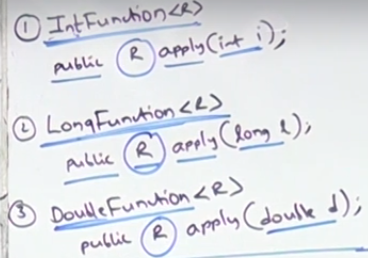 ① IntFunction<R>
public R apply(int i);
② LongFunction<R>
public R apply(long l);
③ DoubleFunction<R>
public R apply(double d);